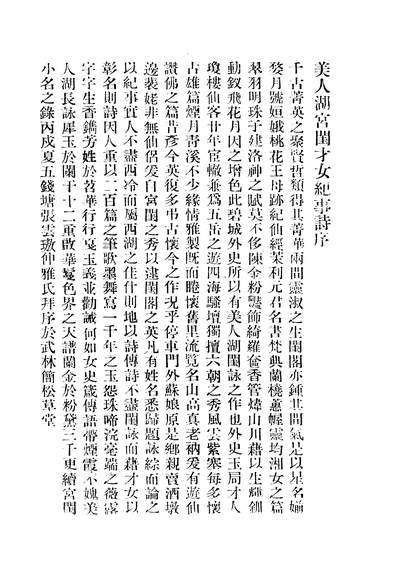 美人湖宮閨才女紀事詩序
千古菁英之聚賢哲類得其菁華兩間靈淑之生閨閣亦鍾其閒氣是以星名婺
婺月號姮娥桃花王母跡紀仙經茉利元君名書梵典蘭橈蕙幄靈均湘女之篇
翠羽明珠子建洛神之賦莫不侈陳金粉豔飾綺羅奩香管煒山川藉以生輝釧
動釵飛花月因之增色此碧城外史所以有美人湖閨詠之作也外史玉局才人
瓊樓仙客廿年宦轍兼為五岳之遊四海騷壇獨擅六朝之秀風雲紫塞每多懷
古雄篇煙月青溪不少緣情雅製既而睠懷舊里流覽名山高真老衲爰有遊仙
讚佛之篇昔彥今英復多弔古懷今之作況乎停車門外蘇娘原是鄉親賣酒墩
邊裴姥非無仙侶爰自宮閨之秀以逮閨閣之英凡有姓名悉歸題詠綜而論之
以紀事實人不盡西冷而屬西湖之佳什則地以詩傳詩不盡閨詠而藉才女以
彰名則詩因人重以二百篇之筆歌墨舞寫一千年之玉怨珠啼浣毫端之薇露
字字生香鐫芳姓於苕華行行戛玉義並勸誡何如女史箴傳語帶煙霞不媿美
人湖長詠犀玉於闌干十二重啟華鬘色界之天譜蘭金於粉黛三千更續宮閨
小名之錄丙戌夏五錢塘張雲璈仲雅氏拜序於武林簡松草堂